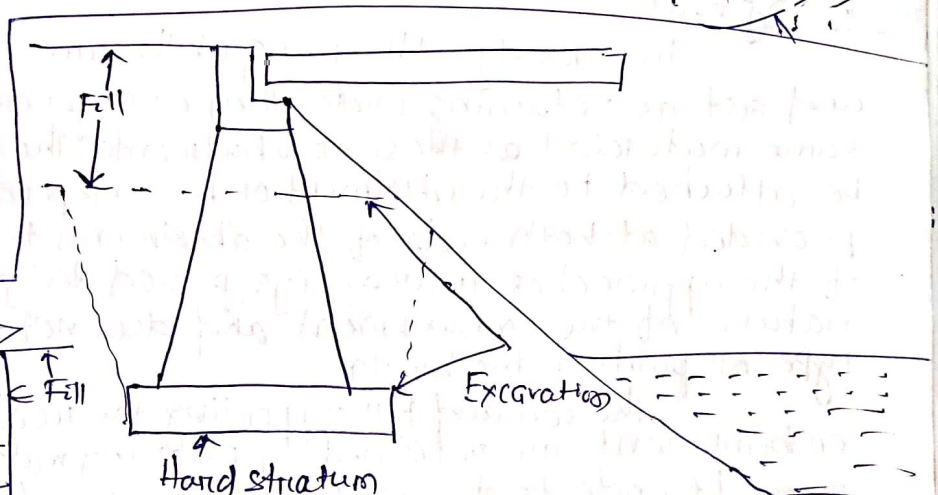 Fill
Fill
Excavation
Hard stratum